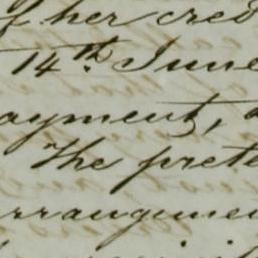 of her cred
14th June
ayment,
The prete
rrangemen